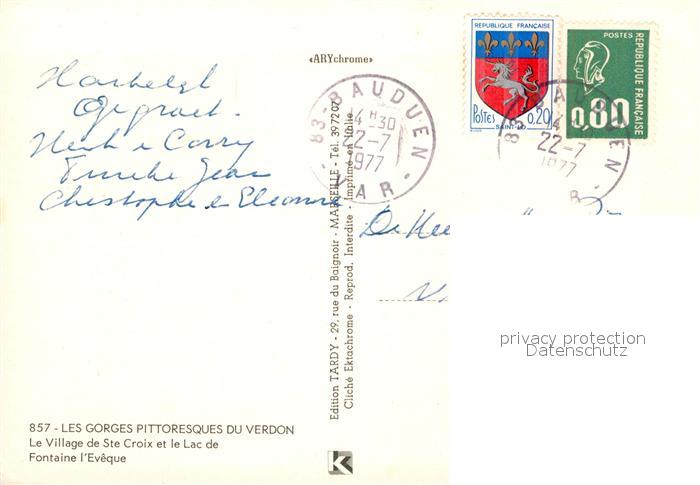 «ARYchrome»
Hartelyk
Gegroet.
Henk e Corry
Christophe en Eleonne
De Hee
V
Edition TARDY - 29, rue du Baignoir - MARSEILLE - Tél. 397207
Cliché Ektachrome - Reprod. Interdite - Imprimé en Italie
REPUBLIQUE FRANÇAISE
POSTES 0,20
SAINT-LO
POSTES
REPUBLIQUE FRANÇAISE
0,80
83 - BAUDUEN
14 H 30
22-7
1977
VAR
83 BAUDUEN
14
22-7
1977
R
privacy protection
Datenschutz
857 - LES GORGES PITTORESQUES DU VERDON
Le Village de Ste Croix et le Lac de
Fontaine l'Evêque
K